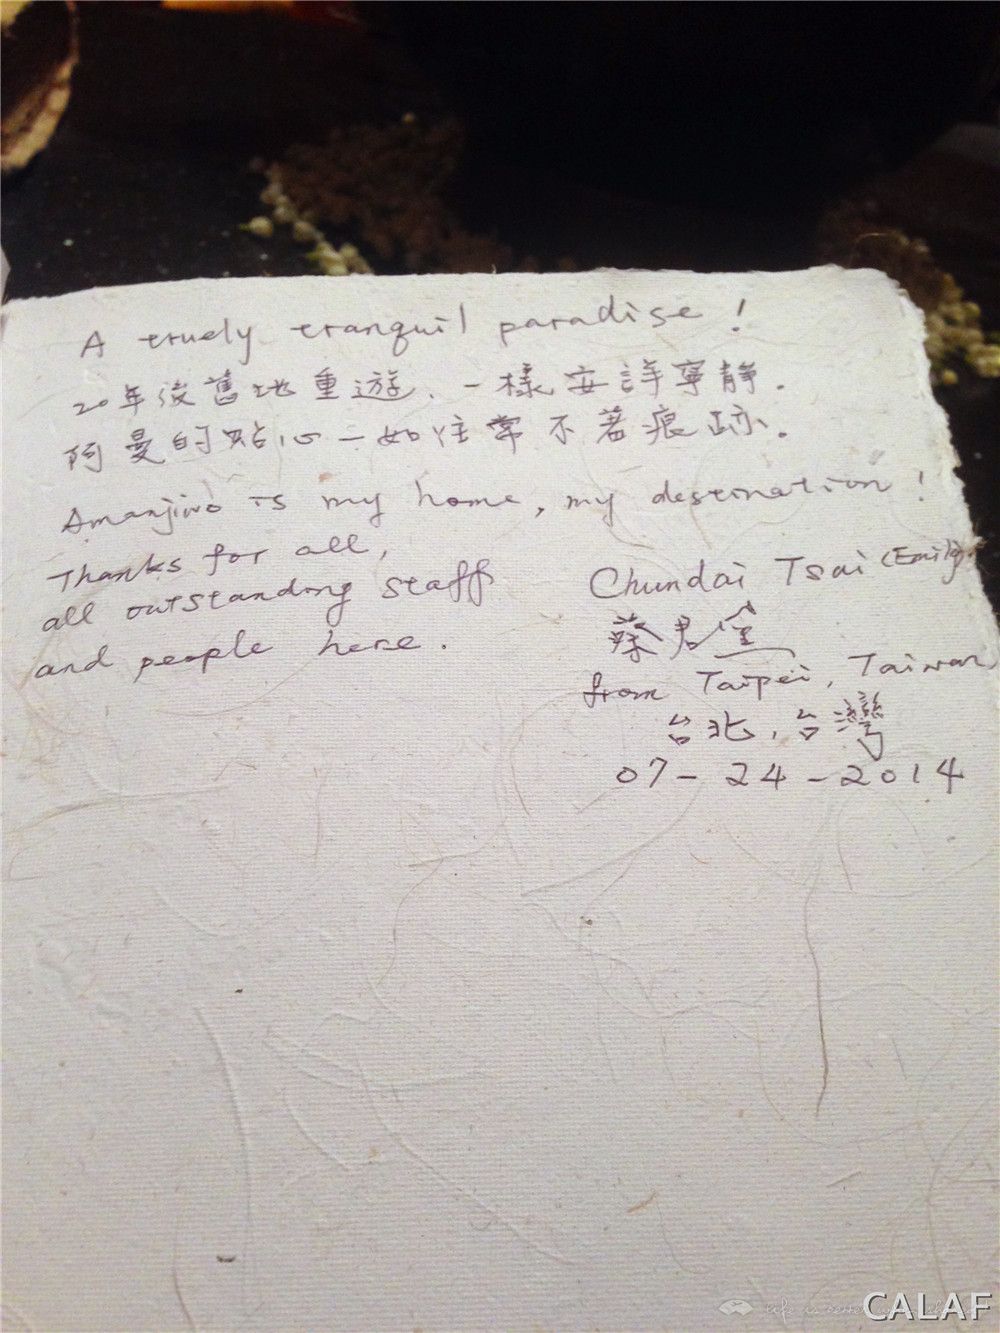 A truely tranquil paradise!
20年後舊地重遊、一樣安詳寧靜.
阿曼的貼心一如往常不著痕跡。
Amanjiwo is my home, my destination!
Thanks for all,
all outstanding staff
and people here.
Chundai Tsai (Emily)
蔡君
from Taipei, Taiwan
台北,台灣
07-24-2014
life is better
CALAF